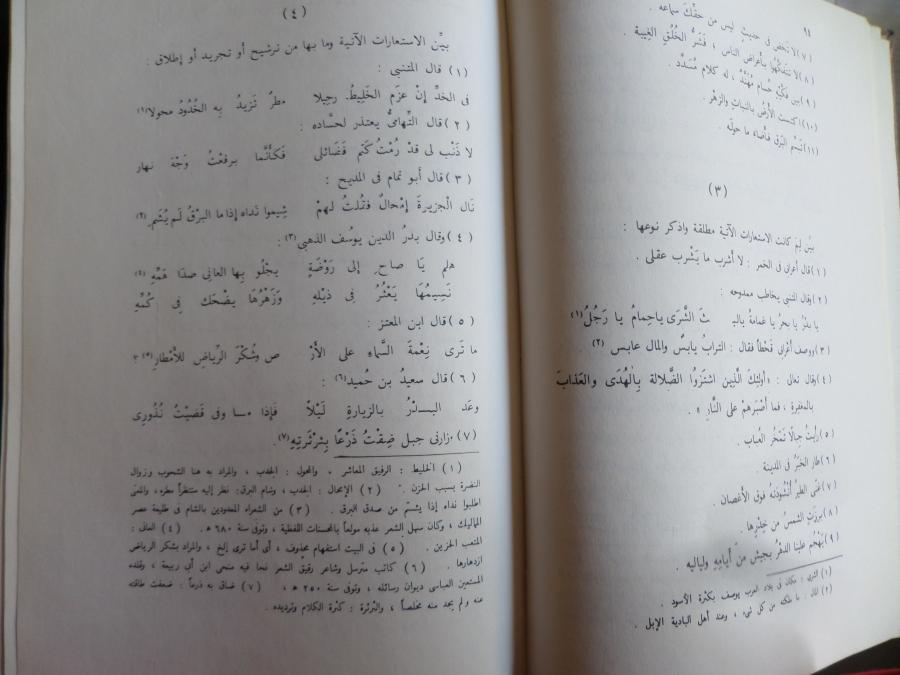 ٩٤
(٧) لا تَخُض فى حديثٍ ليس من حقِّكَ سماعه .
(٨) لا تتفكَّهُوا بأَعراض الناس ، فَشَرُّ الخُلُق الغِيبة .
(٩) بين فَكَّيْهِ حُسام مُهَنَّدٌ ، له كلام مُسَدَّد .
(١٠) اكتست الأَرضُ بالنبات والزهر .
(١١) تَبَسَّم البَرق فأضاء ما حوله .
(٣)
بيِّن لِمَ كانت الاستعارات الآتية مطلقة واذكر نوعها :
(١) قال أعرابى فى الخمر : لا أشرب ما يَشْرب عقلى .
(٢) وقال المتنبى يخاطب ممدوحه :
يا بدْرُ يا بحرُ يا غمامةُ يا لَيْـ ـثَ الشَّرَى يا حِمامُ يا رَجُلُ (١)
(٣) ووصف أعْرابى قَحْطاً فقال : التراب يابسٌ والمال عابس (٢) .
(٤) وقال تعالى : «أولئِكَ الَّذِينَ اشْتَرَوُا الضَّلالَة بِالْهُدَى والْعَذابَ
بالمغفِرة ، فما أَصْبَرهمْ على النَّارِ» .
(٥) رأَيْتُ جبالًا تَمْخُر العُباب .
(٦) طار الخبَرُ فى المدينة .
(٧) غَنَّى الطيرُ أُنْشُودَتَهُ فوق الأغصان .
(٨) برزَتِ الشمسُ من خِدْرِها .
(٩) يَهْجُم علينا الدهْرُ بجيش من أيامِهِ ولياليه .
(١) الشرى : مكان فى بلاد العرب يوصف بكثرة الأسود .
(٢) المال : ما ملكته من كل شىء ، وعند أهل البادية الإبل .
(٤)
بيِّن الاستعارات الآتية وما بها من ترشيح أو تجريد أو إطلاق :
(١) قال المتنبى :
فى الخدِّ إنْ عزَم الخَليطُ رحِيلا مطرٌ تَزِيدُ بِه الخُدُودُ محولا (١)
(٢) قال التِّهامىُّ يعتذر لحسَّاده :
لا ذَنْب لى قدْ رُمْتُ كَتم فَضَائلى فَكأَنَّما برقعْتُ وَجْهَ نهار
(٣) قال أبو تمام فى المديح :
نَال الْجزِيرةَ إمْحالٌ فقُلْتُ لهمْ شِيموا نَداه إذا ما البرْقُ لَم يُشَمِ (٢)
(٤) وقال بدرُ الدين يوسُف الذهبى (٣) :
هلم يَا صاحِ إلى رَوْضَةٍ يجْلُو بها العانى صدَا هَمِّهِ (٤)
نَسِيمُها يَعْثُرُ فى ذيْلِهِ وَزَهْرُها يضْحَك فى كُمِّهِ
(٥) قال ابن المعتز :
ما تَرى نِعْمةَ السَّماءِ على الأَرْ ض وشُكْرَ الرِّياضِ للأَمْطارِ (٥)
(٦) قال سعيدُ بن حُميد (٦) :
وعَد البــدْرُ بالزيارةِ لَيْلاً فإذا مــا وفى قَضيْتُ نُذُورى
(٧) زارنى جبل ضِقْتُ ذَرْعًا بِثرْثَرتِهِ (٧) .
(١) الخليط : الرفيق المعاشر ، والمحول : الجدب ، والمراد به هنا الشحوب وزوال
النضرة بسبب الحزن . (٢) الإمحال : الجدب ، وشام البرق: نظر إليه منتظراً مطره، والمعنى
اطلبوا نداه إذا يئستم من صدق البرق . (٣) من الشعراء المعدودين بالشام فى طليعة عصر
المماليك ، وكان سهل الشعر عذبه مولعاً بالمحسنات اللفظية ، وتوفى سنة ٦٨٠ هـ . (٤) العانى :
المتعب الحزين . (٥) فى البيت استفهام محذوف ، أى أما ترى إلخ ، والمراد بشكر الرياض
ازدهارها . (٦) كاتب مترسل وشاعر رقيق الشعر نحا فيه منحى ابن أبى ربيعة ، وقلده
المستعين العباسى ديوان رسائله ، وتوفى سنة ٢٥٠ هـ . (٧) ضاق به ذرعاً : ضعفت طاقته
عنه ولم يجد منه مخلصاً ، والثرثرة : كثرة الكلام وترديده .